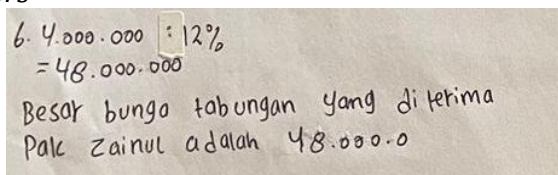 6. 4.000.000 : 12%
= 48.000.000
Besar bunga tabungan yang diterima
Pak Zainul adalah 48.000.0